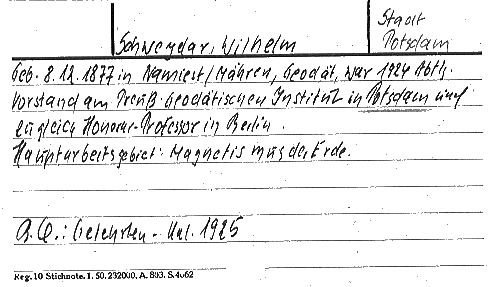 Schweydar, Wilhelm
Stadt
Potsdam
Geb. 8.12.1877 in Namiest/Mähren, Geodät, war 1924 Abtlg.
Vorstand am Preuß. Geodätischen Institut in Potsdam und
zugleich Honorar-Professor in Berlin.
Hauptarbeitsgebiet: Magnetismus der Erde.
A.Q.: Gelehrten - Kal. 1925
Reg. 10 Stichnote. 1. 50. 232000. A. 803. S. 4062